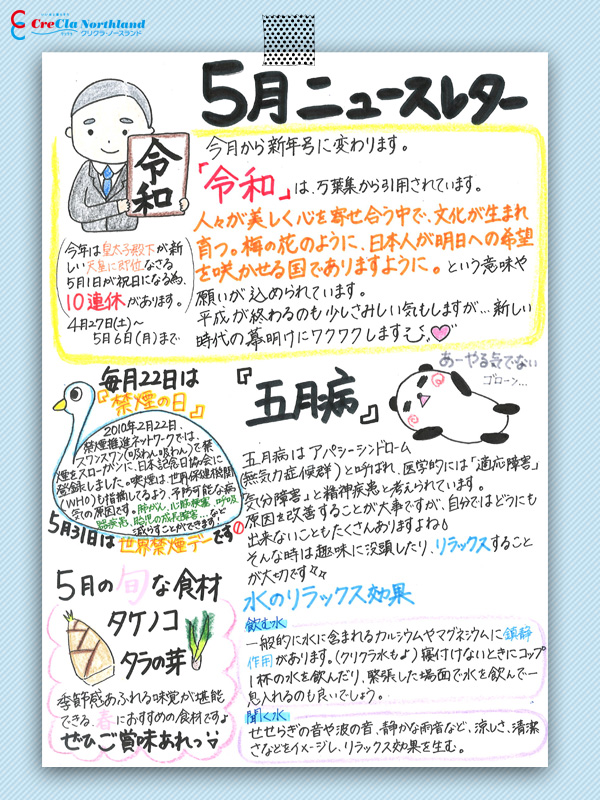 CreCla Northland
クリクラ・ノースランド
5月ニュースレター
令和
今月から新年号に変わります。
「令和」は、万葉集から引用されています。
人々が美しく心を寄せ合う中で、文化が生まれ
育つ。梅の花のように、日本人が明日への希望
を咲かせる国でありますように。という意味や
願いが込められています。
平成が終わるのも少しさみしい気もしますが…新しい
時代の幕明けにワクワクします
今年は皇太子殿下が新
しい天皇に即位なさる
5月1日が祝日になる為、
10連休があります。
4月27日(土)〜
5月6日(月)まで
毎月22日は
『禁煙の日』
2010年2月22日、
禁煙推進ネットワークでは、
スワンスワン(吸わん吸わん)で禁
煙をスローガンに、日本記念日協会に
登録しました。喫煙は、世界保健機関
(WHO)も指摘してるよう、予防可能な病
気の原因です。肺がん、心筋梗塞、呼吸
器疾患、胎児の成長障害…など
減らすことができます!
5月31日は世界禁煙デーです!
5月の旬な食材
タケノコ
タラの芽
季節感あふれる味覚が堪能
できる、春におすすめの食材ですよ
ぜひご賞味あれっ
『五月病』
あーやる気でない
ゴローン…
五月病はアパシーシンドローム
(無気力症候群)と呼ばれ、医学的には「適応障害」
「気分障害」と精神疾患と考えられています。
原因を改善することが大事ですが、自分ではどうにも
出来ないこともたくさんありますよね!
そんな時は趣味に没頭したり、リラックスすること
が大切です
水のリラックス効果
飲む水
一般的に水に含まれるカルシウムやマグネシウムに鎮静
作用があります。(クリクラ水もよ)寝付けないときにコップ
1杯の水を飲んだり、緊張した場面で水を飲んで一
息入れるのも良いでしょう。
聞く水
せせらぎの音や波の音、静かな雨音など、涼しさ、清潔
さなどをイメージし、リラックス効果を生む。